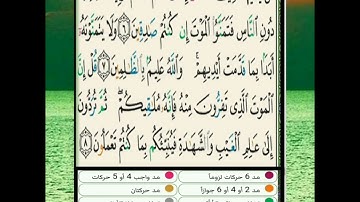 دُونِ ٱلنَّاسِ فَتَمَنَّوُا۟ ٱلْمَوْتَ إِن كُنتُمْ صَٰدِقِينَ ٦ وَلَا يَتَمَنَّوْنَهُۥٓ
أَبَدًۢا بِمَا قَدَّمَتْ أَيْدِيهِمْ ۚ وَٱللَّهُ عَلِيمٌۢ بِٱلظَّٰلِمِينَ ٧ قُلْ إِنَّ
ٱلْمَوْتَ ٱلَّذِى تَفِرُّونَ مِنْهُ فَإِنَّهُۥ مُلَٰقِيكُمْ ۖ ثُمَّ تُرَدُّونَ
إِلَىٰ عَٰلِمِ ٱلْغَيْبِ وَٱلشَّهَٰدَةِ فَيُنَبِّئُكُم بِمَا كُنتُمْ تَعْمَلُونَ ٨
مد 6 حركات لزوماً مد واجب 4 أو 5 حركات
مد 2 أو 4 أو 6 جوازاً مد حركتان